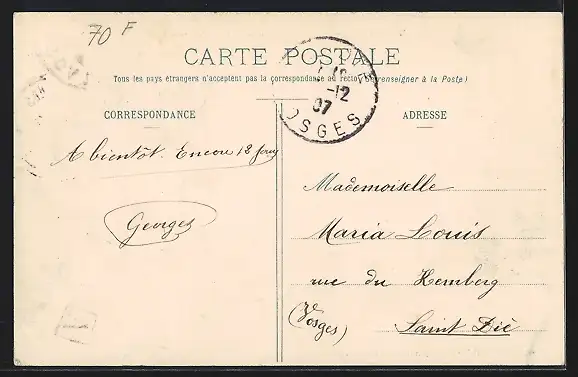 70 F
CARTE POSTALE
Tous les pays étrangers n'acceptent pas la correspondance au recto (Se renseigner à la Poste)
-12
07
OSGES
CORRESPONDANCE
ADRESSE
A bientôt. Encore 12 jours
Georges
Mademoiselle
Maria Louis
rue du Kemberg
Saint Dié
(Vosges)